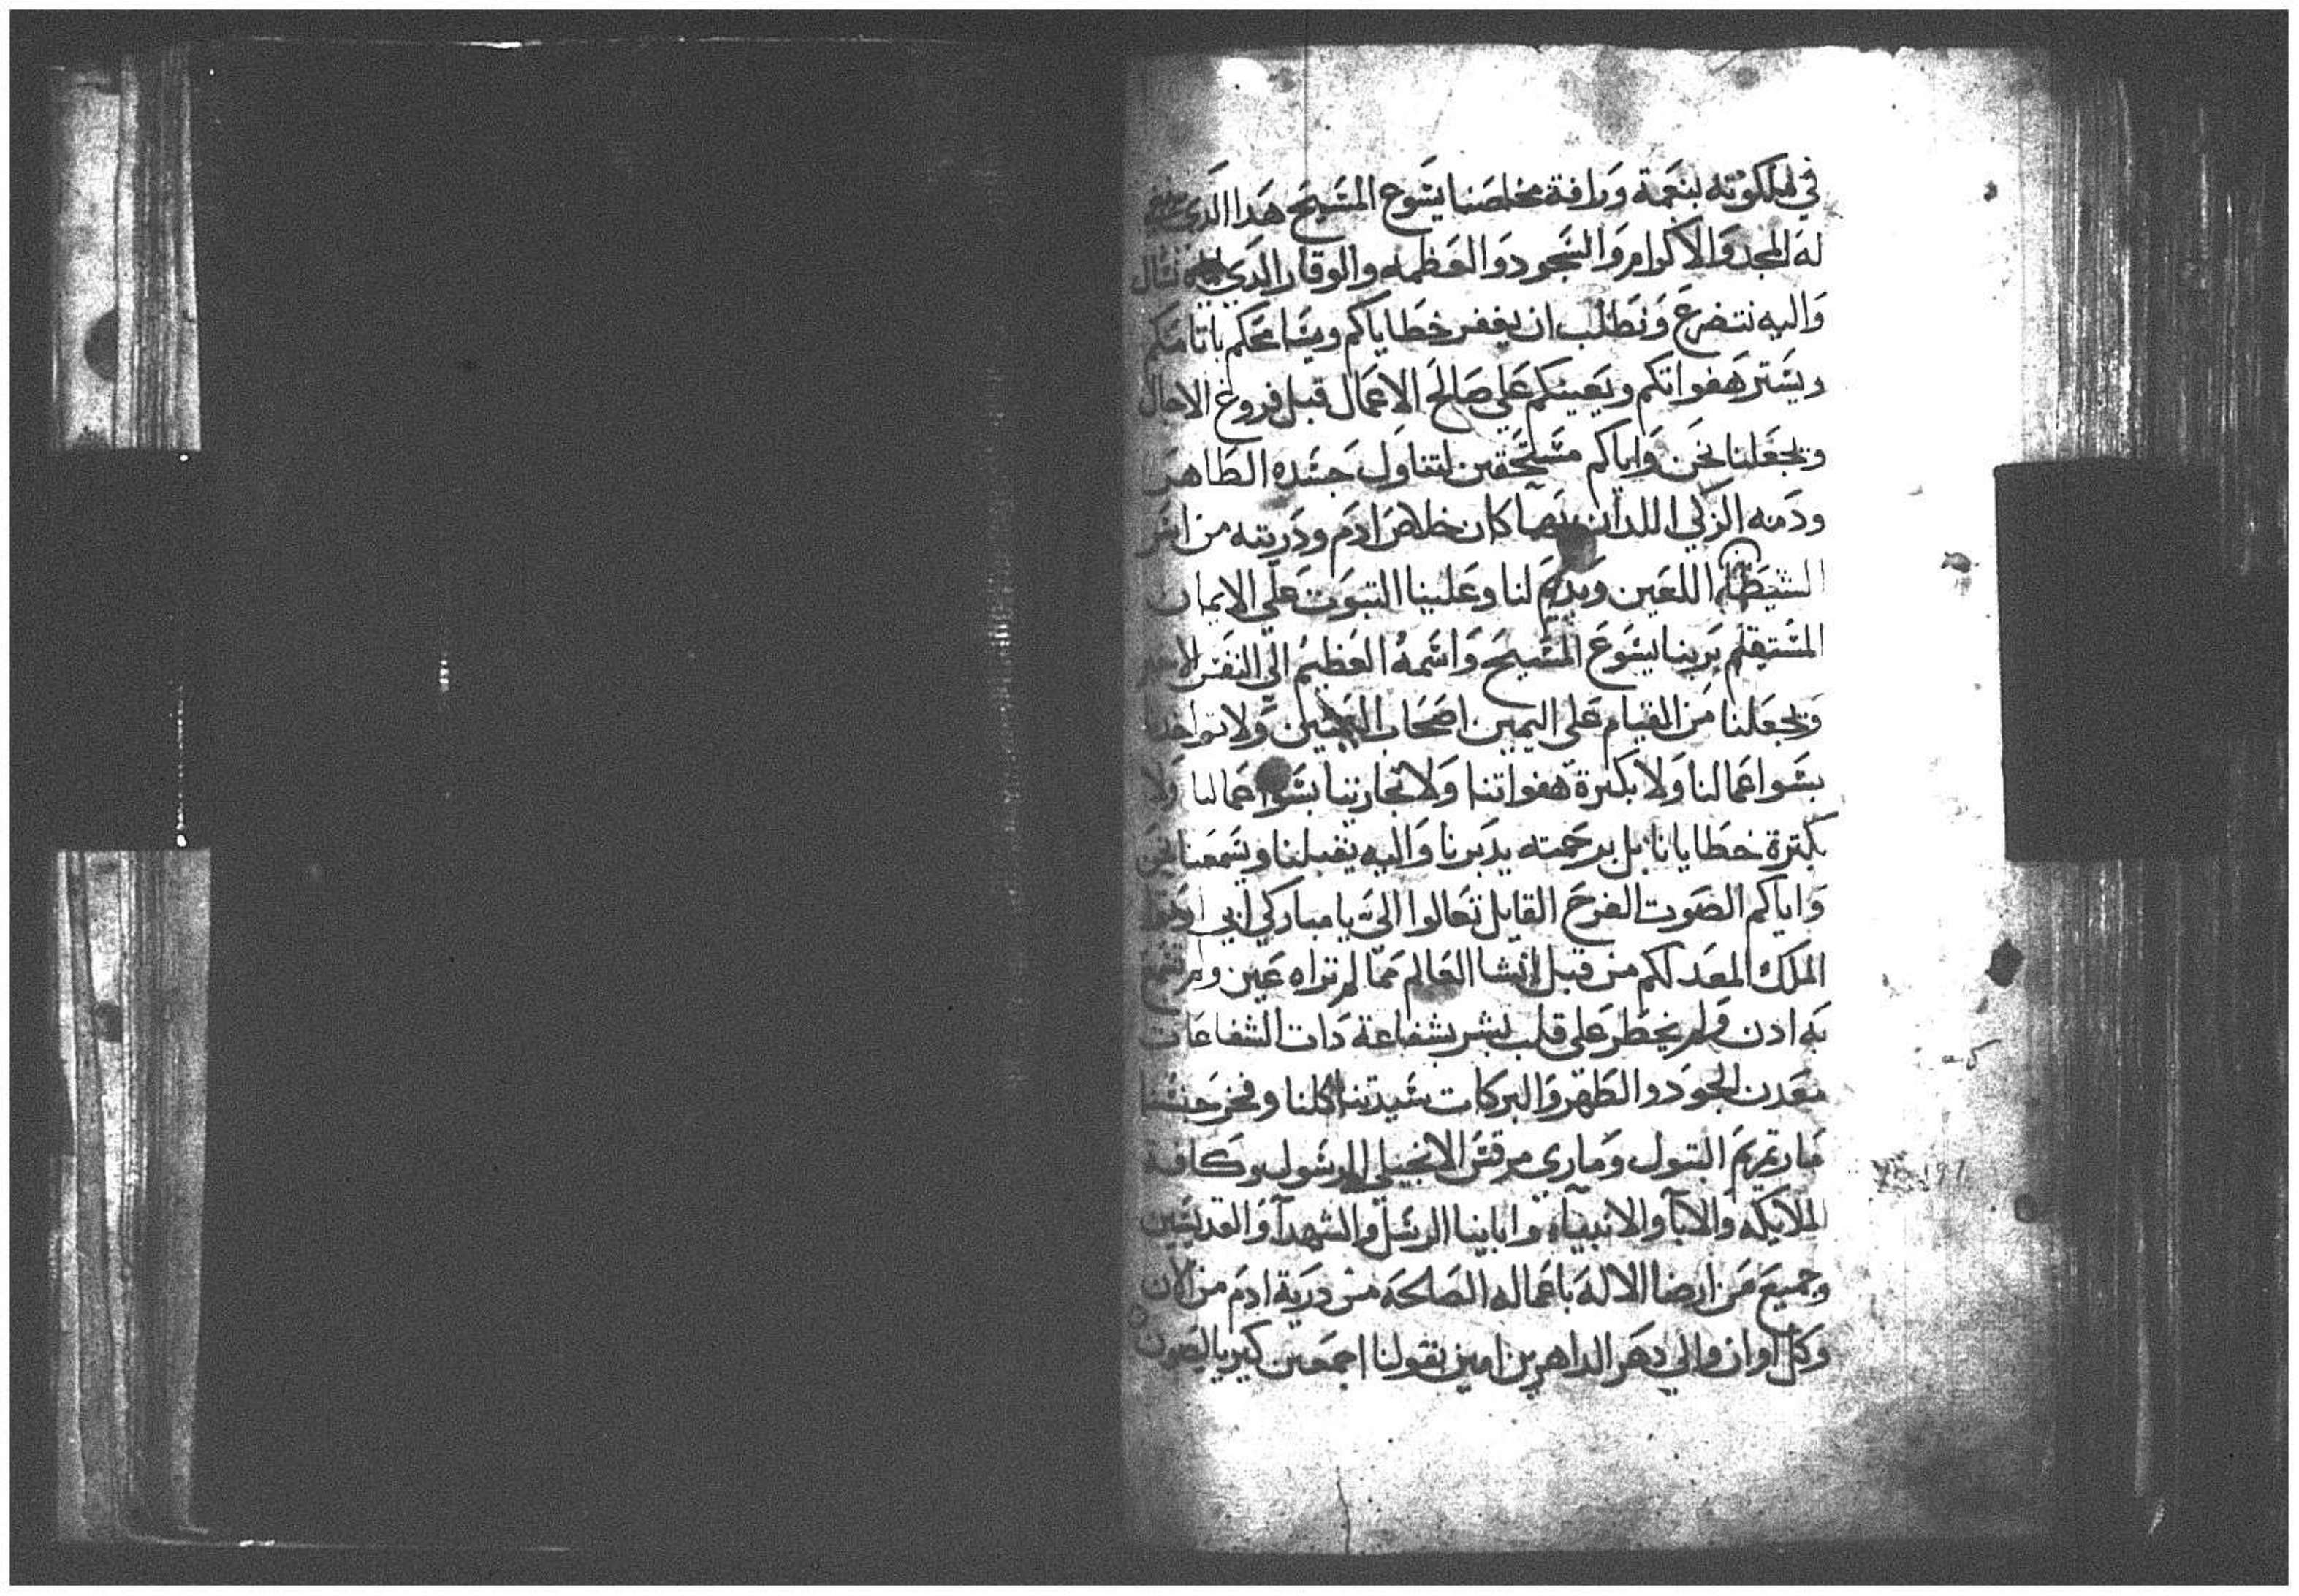 في ملكوته بنعمة ورافة مخلصنا يسوع المسيح هدا الدي
له المجد والاكرام والسجود والعظمه والوقار الدي نسال
واليه نتضرع ونطلب ان يغفر خطاياكم ويسامحكم باتامكم
ويستر هفواتكم ويعينكم علي صالح الاعمال قبل فروغ الاجال
ويجعلنا نحن واياكم مستحقين لتناول جسده الطاهر
ودمه الزكي اللدان بهما كان خلاص ادم ودريته من اسر
الشيطان اللعين ويديم لنا وعلينا التبوت علي الايمان
المستقيم بربنا يسوع المسيح واسمه العظيم الي النفس الاخير
ويجعلنا من القيام علي اليمين اصحاب اليمين ولا تواخدنا
بسوا عمالنا ولا بكترة هفواتنا ولا تجازينا بسوا عمالنا ولا
بكترة خطايانا بل برحمته يدبرنا واليه يقبلنا ويسمعنا نحن
واياكم الصوت الفرح القايل تعالوا الي يا مباركي ابي
الملك المعد لكم من قبل انشا العالم مما لم تراه عين ولم تسمع
به ادن ولم يخطر علي قلب بشر بشفاعة دات الشفاعات
معدن الجود والطهر والبركات سيدتنا كلنا وفخر جنسنا
مارتمريم البتول وماري مرقس الانجيلي الرسول وكافة
الملايكه والابآ والانبيآء وابابنا الرسل والشهدآ والقديسين
وجميع من ارضا الاله باعماله الصالحه من درية ادم من الان
وكل اوان والي دهر الداهرين امين بقولنا اجمعين كيرياليصون